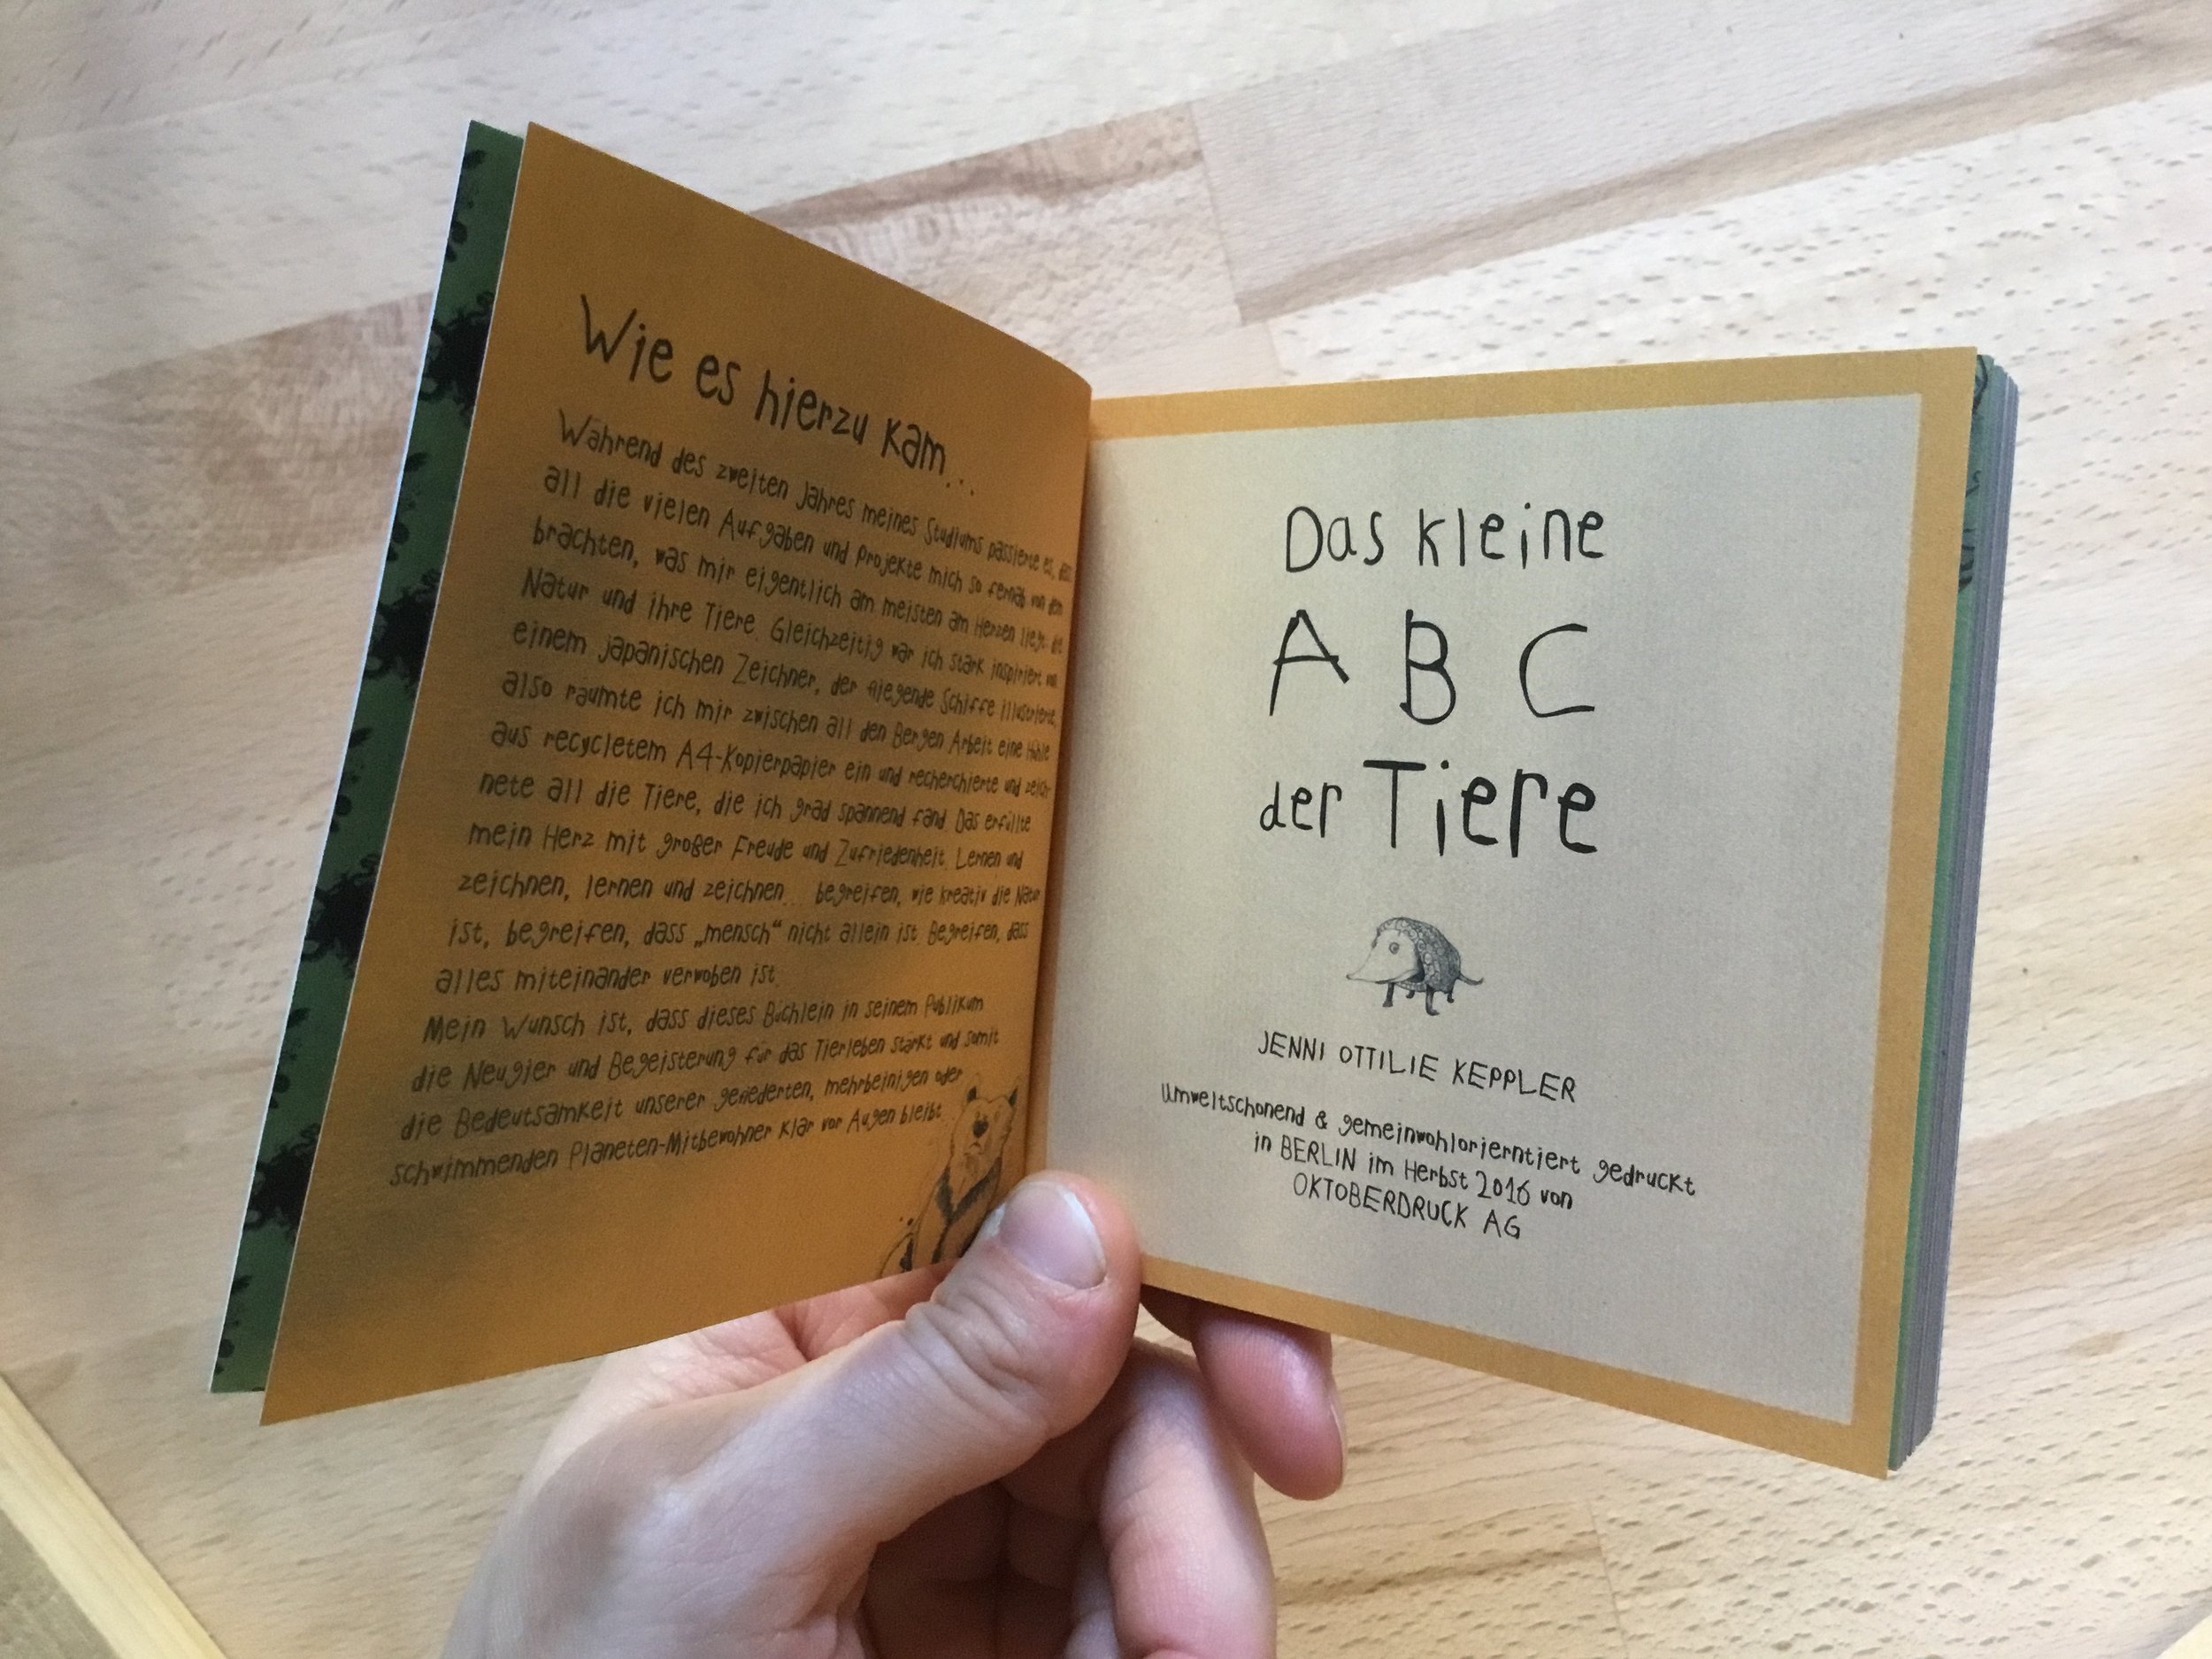 Wie es hierzu kam...
Während des zweiten Jahres meines Studiums passierte es, dass
all die vielen Aufgaben und Projekte mich so fernab von dem
brachten, was mir eigentlich am meisten am Herzen liegt: die
Natur und ihre Tiere. Gleichzeitig war ich stark inspiriert von
einem japanischen Zeichner, der fliegende Schiffe illustriert,
also räumte ich mir zwischen all den Bergen Arbeit eine Höhle
aus recycletem A4-Kopierpapier ein und recherchierte und zeich-
nete all die Tiere, die ich grad spannend fand. Das erfüllte
mein Herz mit großer Freude und Zufriedenheit. Lernen und
zeichnen, lernen und zeichnen... begreifen, wie kreativ die Natur
ist, begreifen, dass „mensch“ nicht allein ist. Begreifen, dass
alles miteinander verwoben ist.
Mein Wunsch ist, dass dieses Büchlein in seinem Publikum
die Neugier und Begeisterung für das Tierleben stärkt und somit
die Bedeutsamkeit unserer gefiederten, mehrbeinigen oder
schwimmenden Planeten-Mitbewohner klar vor Augen bleibt.
Das kleine
A B C
der Tiere
JENNI OTTILIE KEPPLER
Umweltschonend & gemeinwohlorierntiert gedruckt
in BERLIN im Herbst 2016 von
OKTOBERDRUCK AG